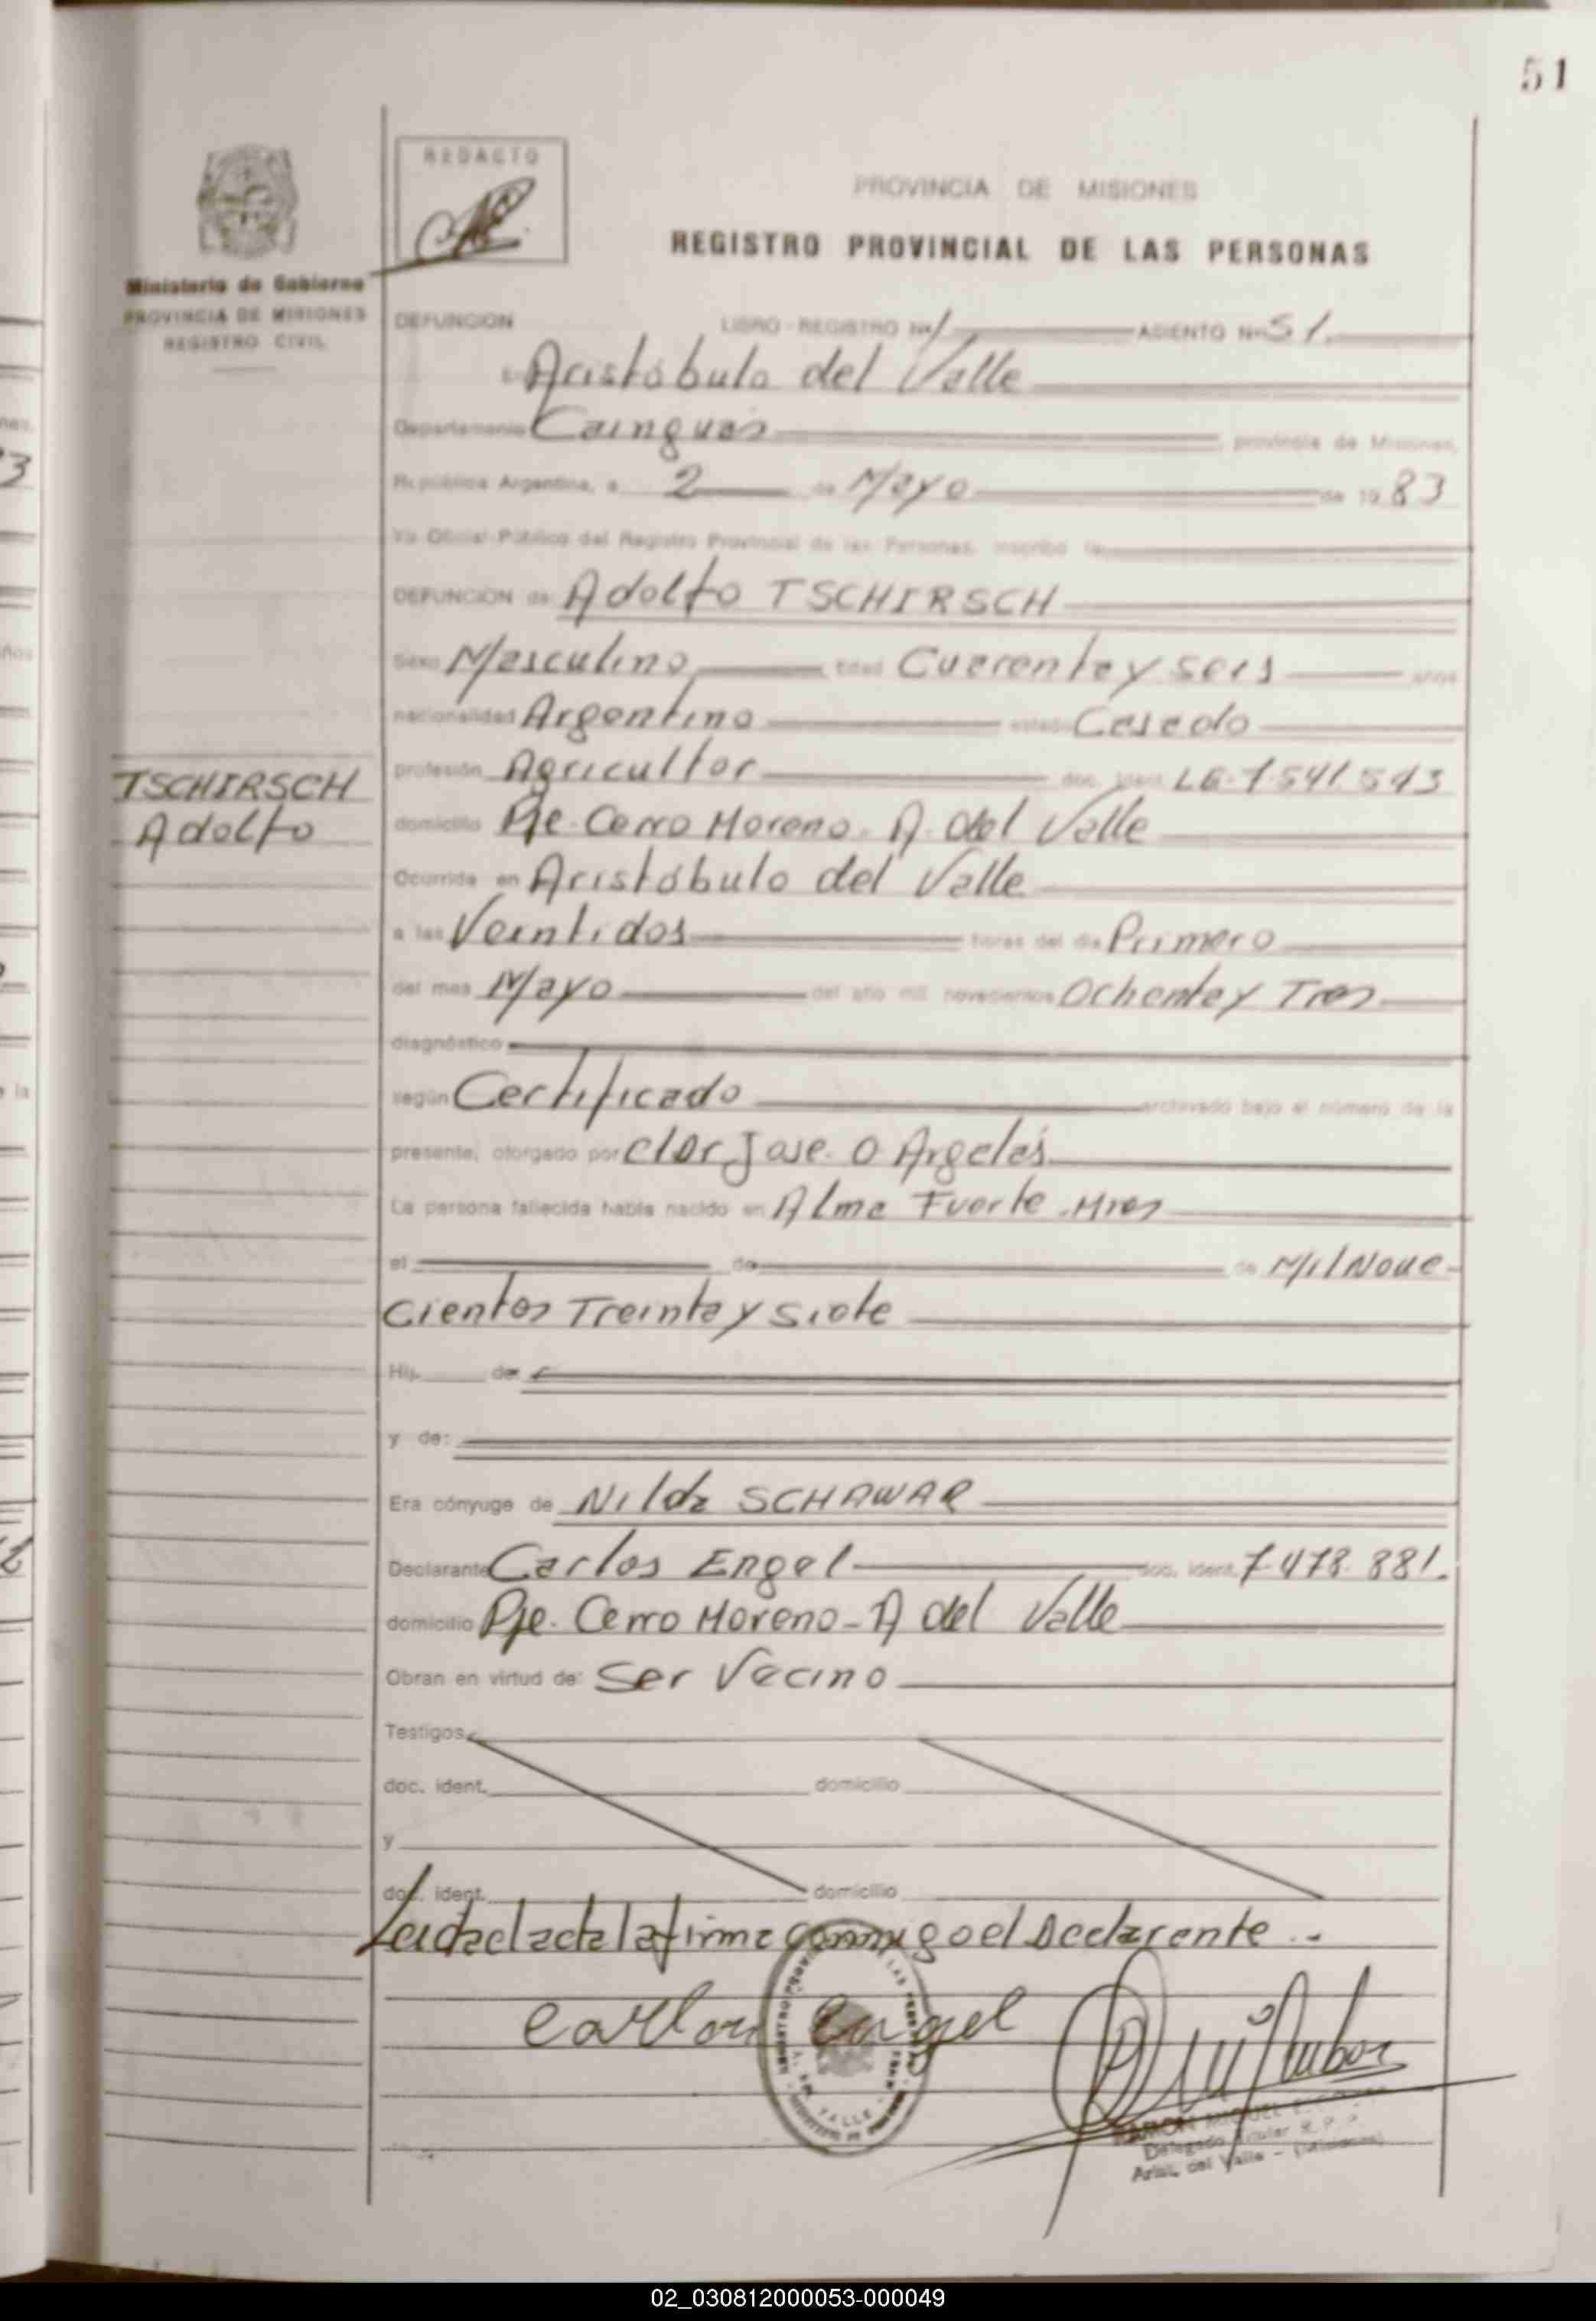 51
REDACTO
PROVINCIA DE MISIONES
REGISTRO PROVINCIAL DE LAS PERSONAS
Ministerio de Gobierno
PROVINCIA DE MISIONES
REGISTRO CIVIL
DEFUNCION LIBRO - REGISTRO Nº 1 ASIENTO Nº 51.
En Aristóbulo del Valle
Departamento Cainguás provincia de Misiones,
República Argentina, a 2 de Mayo de 19 83
Yo Oficial Público del Registro Provincial de las Personas, inscribo la
DEFUNCION de Adolfo TSCHIRSCH
Sexo Masculino Edad Cuarenta y seis años
nacionalidad Argentino estado Casado
TSCHIRSCH
Adolfo
profesión Agricultor doc. ident. LE-7.541.513
domicilio Pje. Cerro Moreno. A. del Valle
Ocurrida en Aristóbulo del Valle
a las Veintidos horas del dia Primero
del mes Mayo del año mil novecientos Ochenta y Tres
diagnóstico
según Certificado archivado bajo el número de la
presente, otorgado por el Dr. Jose. O Argeles
La persona fallecida había nacido en Alma Fuerte. Mnes
el de de Mil Nove-
cientos Treinta y Siete
Hij de:
y de:
Era cónyuge de Nilda SCHAWAR
Declarante Carlos Engel doc. ident. 7.478.881.
domicilio Pje. Cerro Moreno - A del Valle
Obran en virtud de: Ser Vecino
Testigos
doc. ident. domicilio
y
doc. ident. domicilio
Leida el acta la firma conmigo el Declarante ..
Carlos Engel
RAMON MIGUEL
Delegado Titular R. P. P.
Arist. del Valle - (Misiones)
02_030812000053-000049